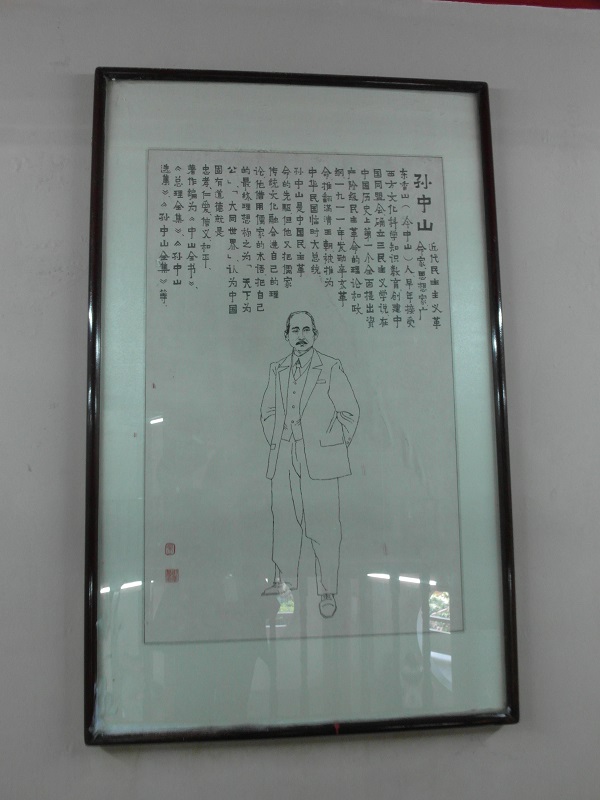 孙中山
近代民主主义革
命家思想家广
东香山（今中山）人早年接受
西方文化科学知识教育创建中
国同盟会确立三民主义学说在
中国历史上第一个全面提出资
产阶级民主革命的理论和政
纲一九一一年发动辛亥革
命推翻满清王朝被推为
中华民国临时大总统
孙中山是中国民主革
命的先驱但他又把儒家
传统文化融会进自己的理
论他借用儒家的术语把自己
的最终理想称之为“天下为
公”“大同世界”认为中国
固有道德就是
忠孝仁爱信义和平、
著作编为《中山全书》、
《总理全集》《孙中山
选集》《孙中山全集》等